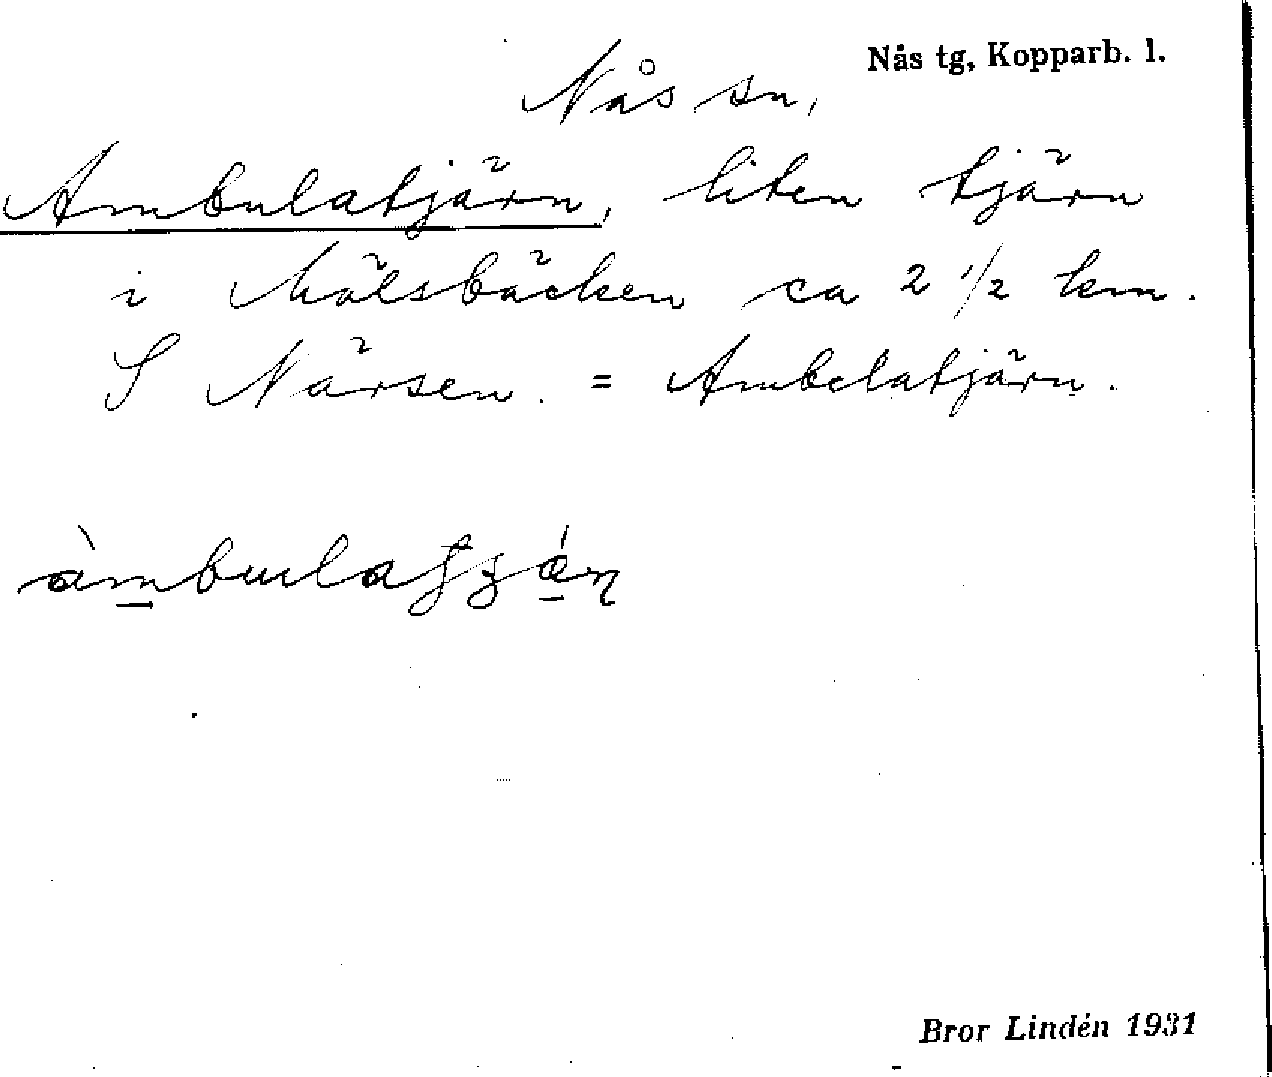 Nås tg, Kopparb. l.
Nås sn,
Ambulatjärn, liten tjärn
i Mälsbäcken ca 2 1/2 km.
S Närsen. = Ambelatjärn.
Bror Lindén 1931